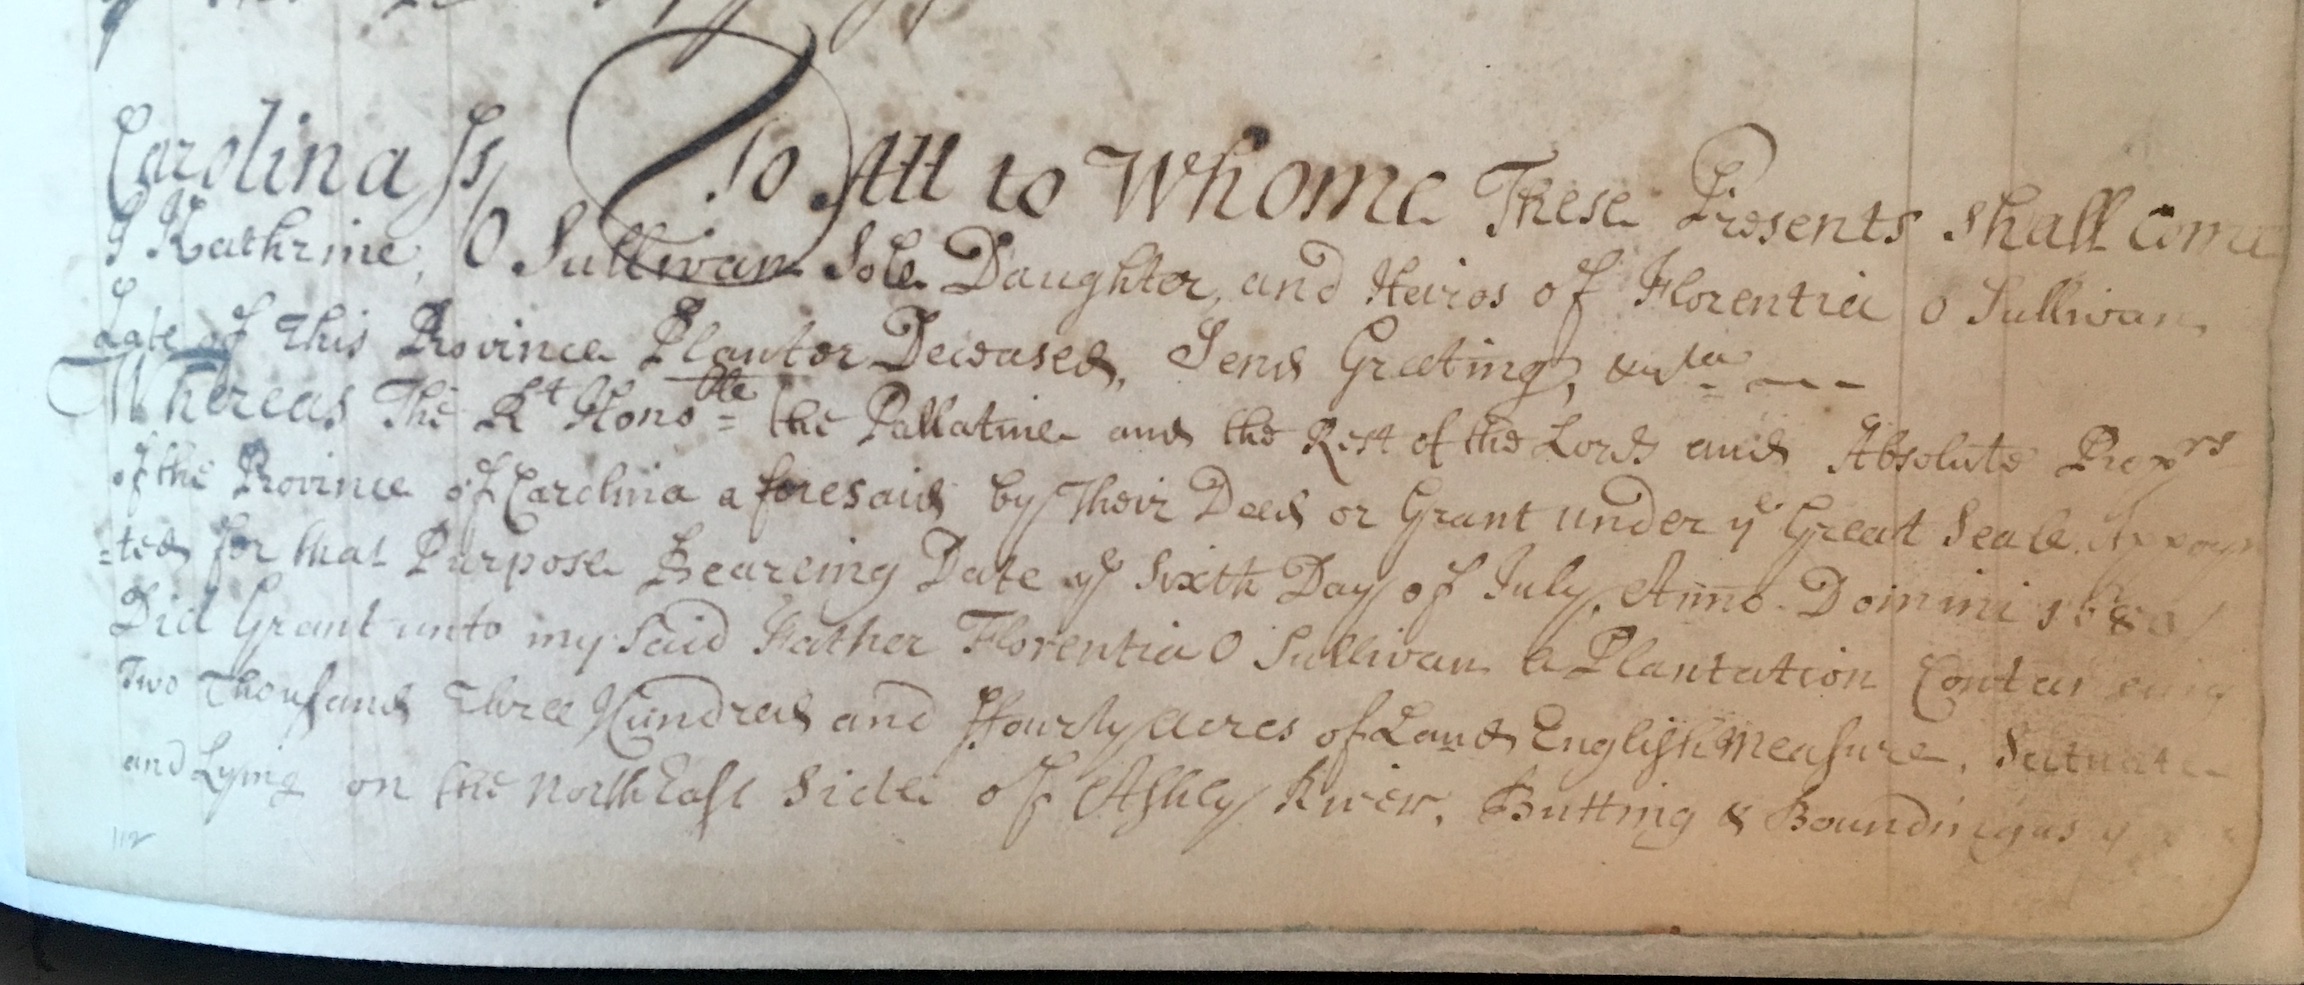 Carolina ss To All to Whome These Presents shall come
I Kathrine, O Sullivan Sole Daughter, and Heires of Florentia O Sullivan,
Late of This Province Planter Deceased, Send Greeting,
Whereas The Rt Honoble the Pallatine and the Rest of the Lords and Absolute Proprs
of the Province of Carolina aforesaid by Their Deed or Grant under ye Great Seale Appoyn
=ted for that Purpose Beareing Date ye Sixth Day of July, Anno Domini
Did Grant unto my Said Father Florentia O Sullivan a Plantation Containeing
Two Thousand Three Hundred and ffourty acres of Land English Measure, Scituate
and Lying on the North East Side of Ashley River, Butting & Bounding as
112